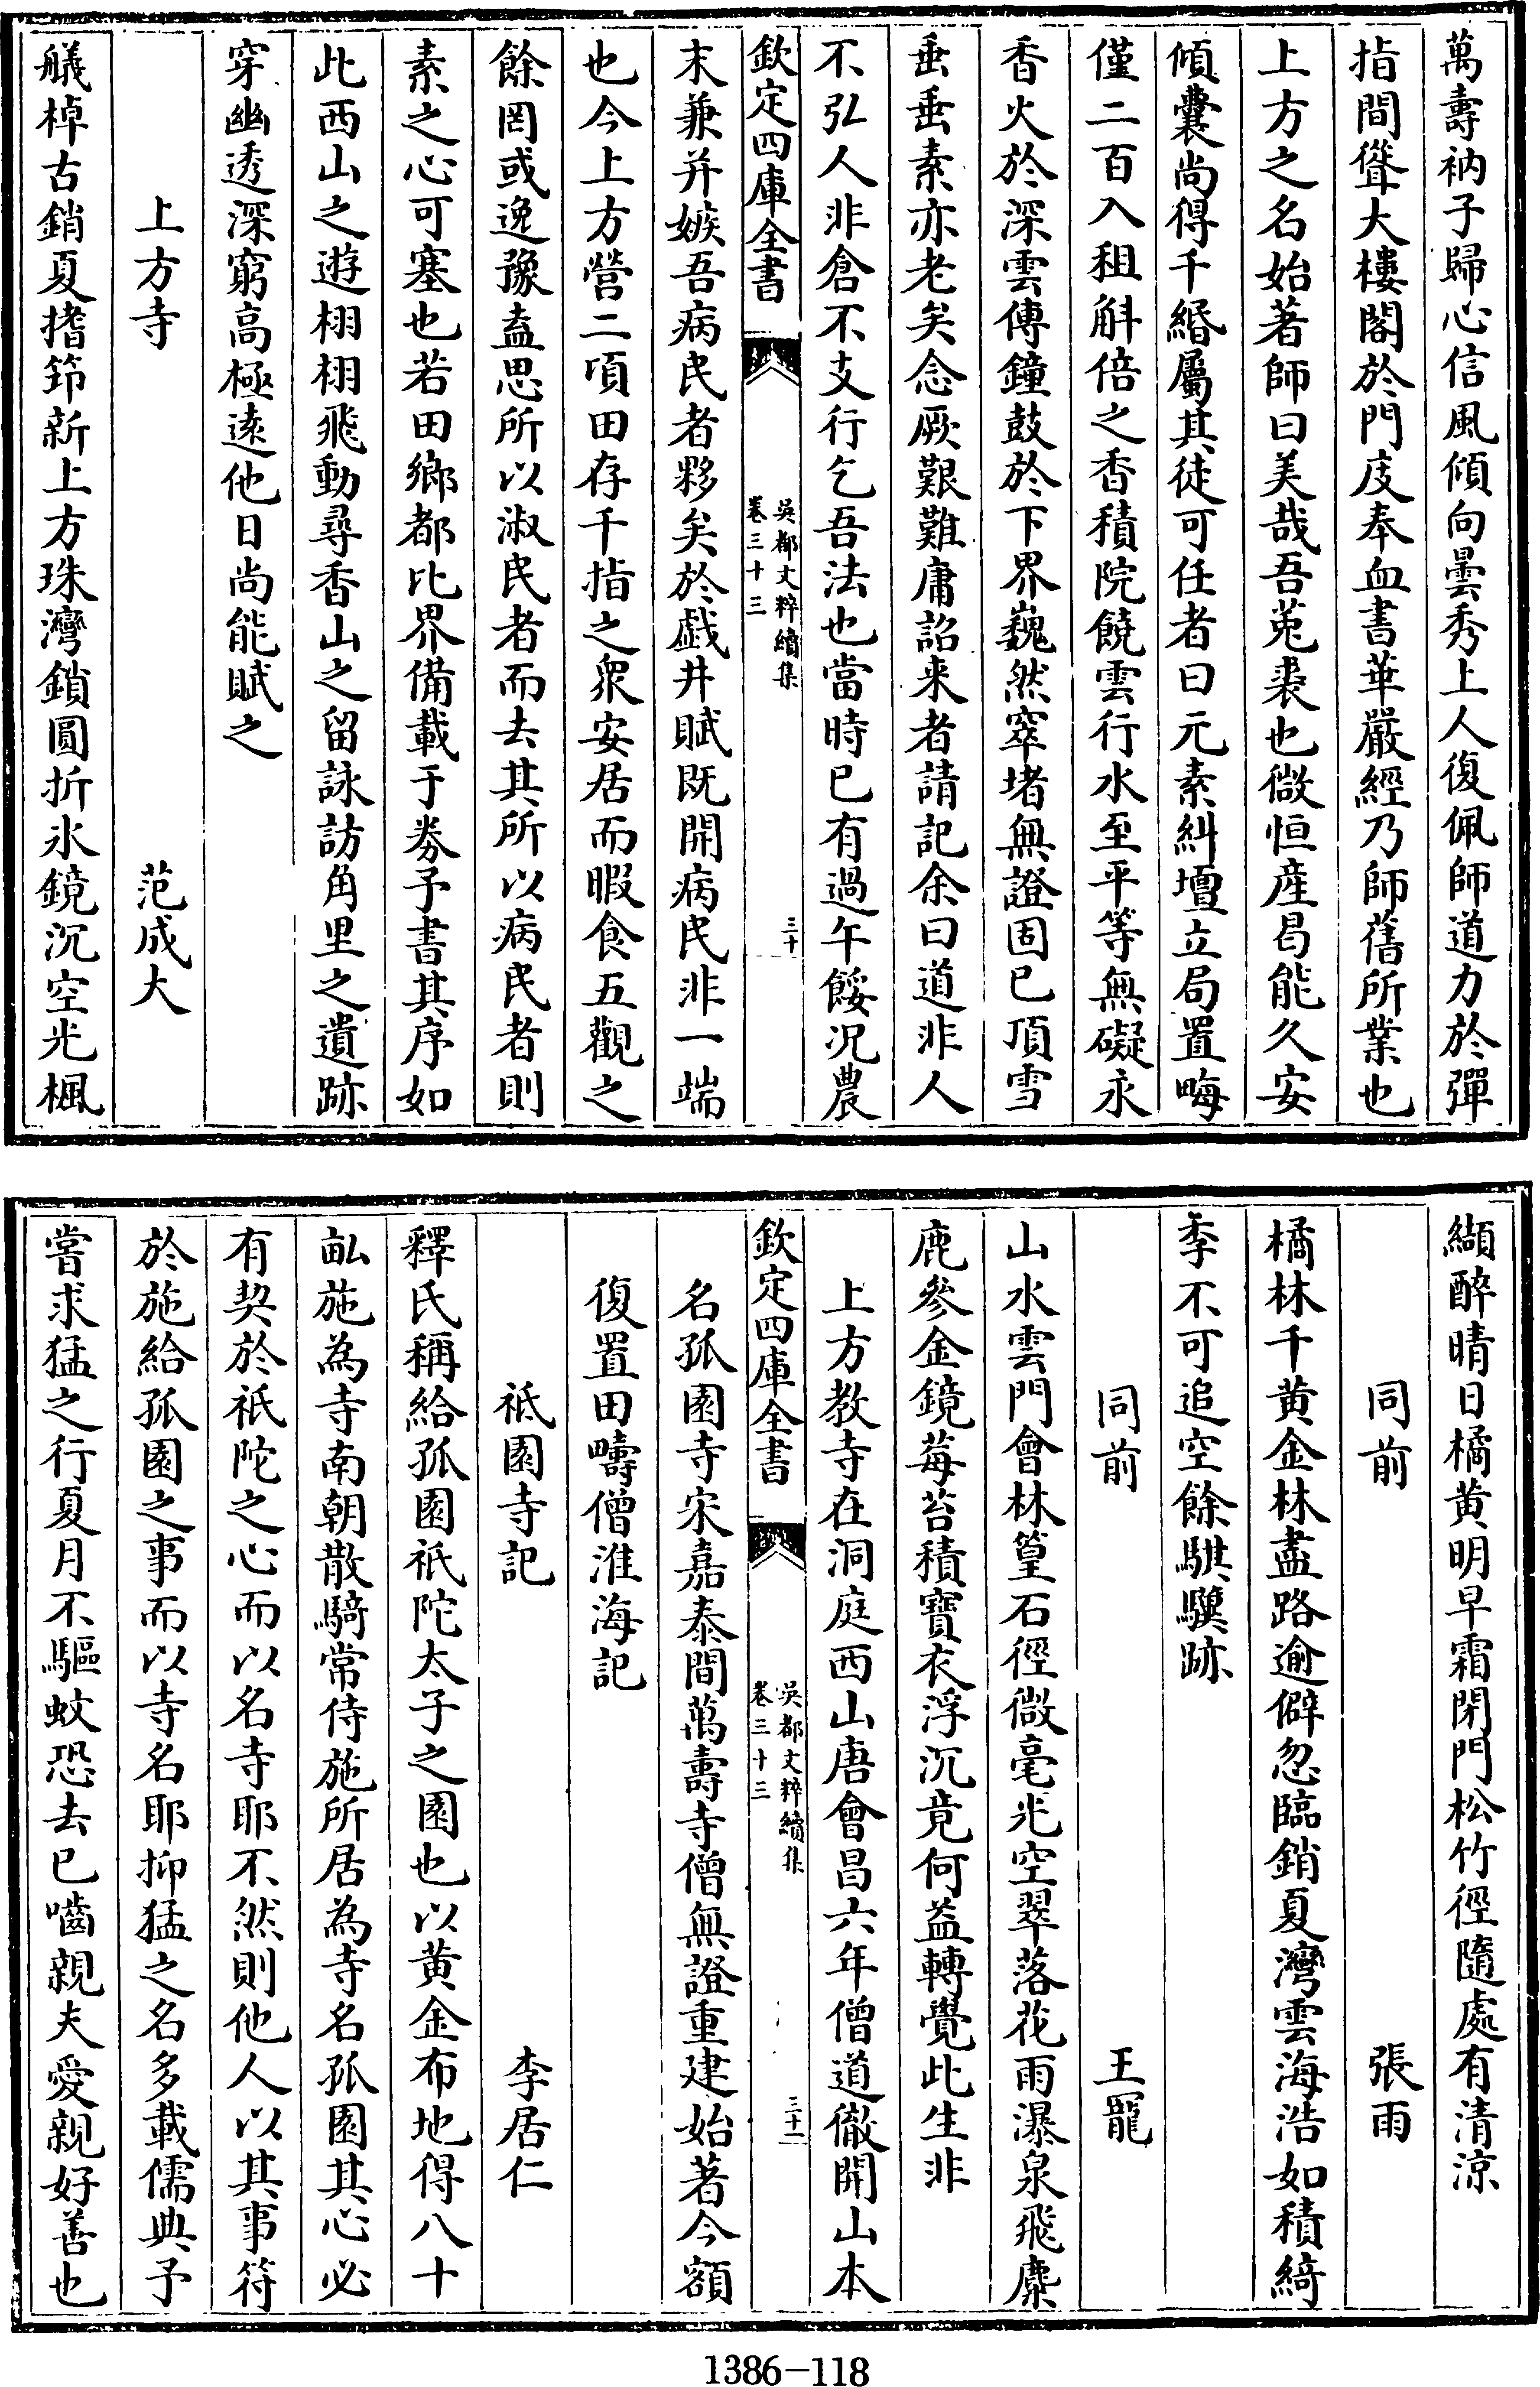 萬壽衲子歸心信風傾向曇秀上人復佩師道力於彈
指間聳大樓閣於門庋奉血書華嚴經乃師舊所業也
上方之名始著師曰美哉吾菟裘也微恒産曷能久安
傾囊尚得千緡屬其徒可任者曰元素糾壇立局置畮
僅二百入租斛倍之香積院饒雲行水至平等無礙永
香火於深雲傳鐘鼓於下界巍然窣堵無證固已頂雪
垂垂素亦老矣念厥艱難庸詔来者請記余曰道非人
不弘人非倉不支行乞吾法也當時已有過午餒况農
欽定四庫全書
吳都文粹續集
卷三十三
三十
末兼并嫉吾病民者夥矣於戯井賦既開病民非一端
也今上方營二頃田存千指之衆安居而暇食五觀之
餘罔或逸豫盍思所以淑民者而去其所以病民者則
素之心可塞也若田鄉都比界備載于券予書其序如
此西山之遊栩栩飛動尋香山之留詠訪角里之遺跡
穿幽透深窮高極遠他日尚能賦之
上方寺
范成大
艤棹古銷夏揩笻新上方珠灣鎖圓折氷鏡沉空光楓
纈醉晴日橘黄明早霜閉門松竹徑隨處有清涼
同前
張雨
橘林千黄金林盡路逾僻忽臨銷夏灣雲海浩如積綺
季不可追空餘騏驥跡
同前
王寵
山水雲門會林篁石徑微毫光空翠落花雨瀑泉飛麋
鹿參金鏡莓苔積寶衣浮沉竟何益轉覺此生非
上方教寺在洞庭西山唐會昌六年僧道徹開山本
欽定四庫全書
吳都文粹續集
卷三十三
三十一
名孤園寺宋嘉泰間萬壽寺僧無證重建始著今額
復置田疇僧淮海記
祗園寺記
李居仁
釋氏稱給孤園祇陀太子之園也以黄金布地得八十
畆施為寺南朝散騎常侍施所居為寺名孤園其心必
有契於祇陀之心而以名寺耶不然則他人以其事符
於施給孤園之事而以寺名耶抑猛之名多載儒典予
嘗求猛之行夏月不驅蚊恐去已嚙親夫愛親好善也
1386-118